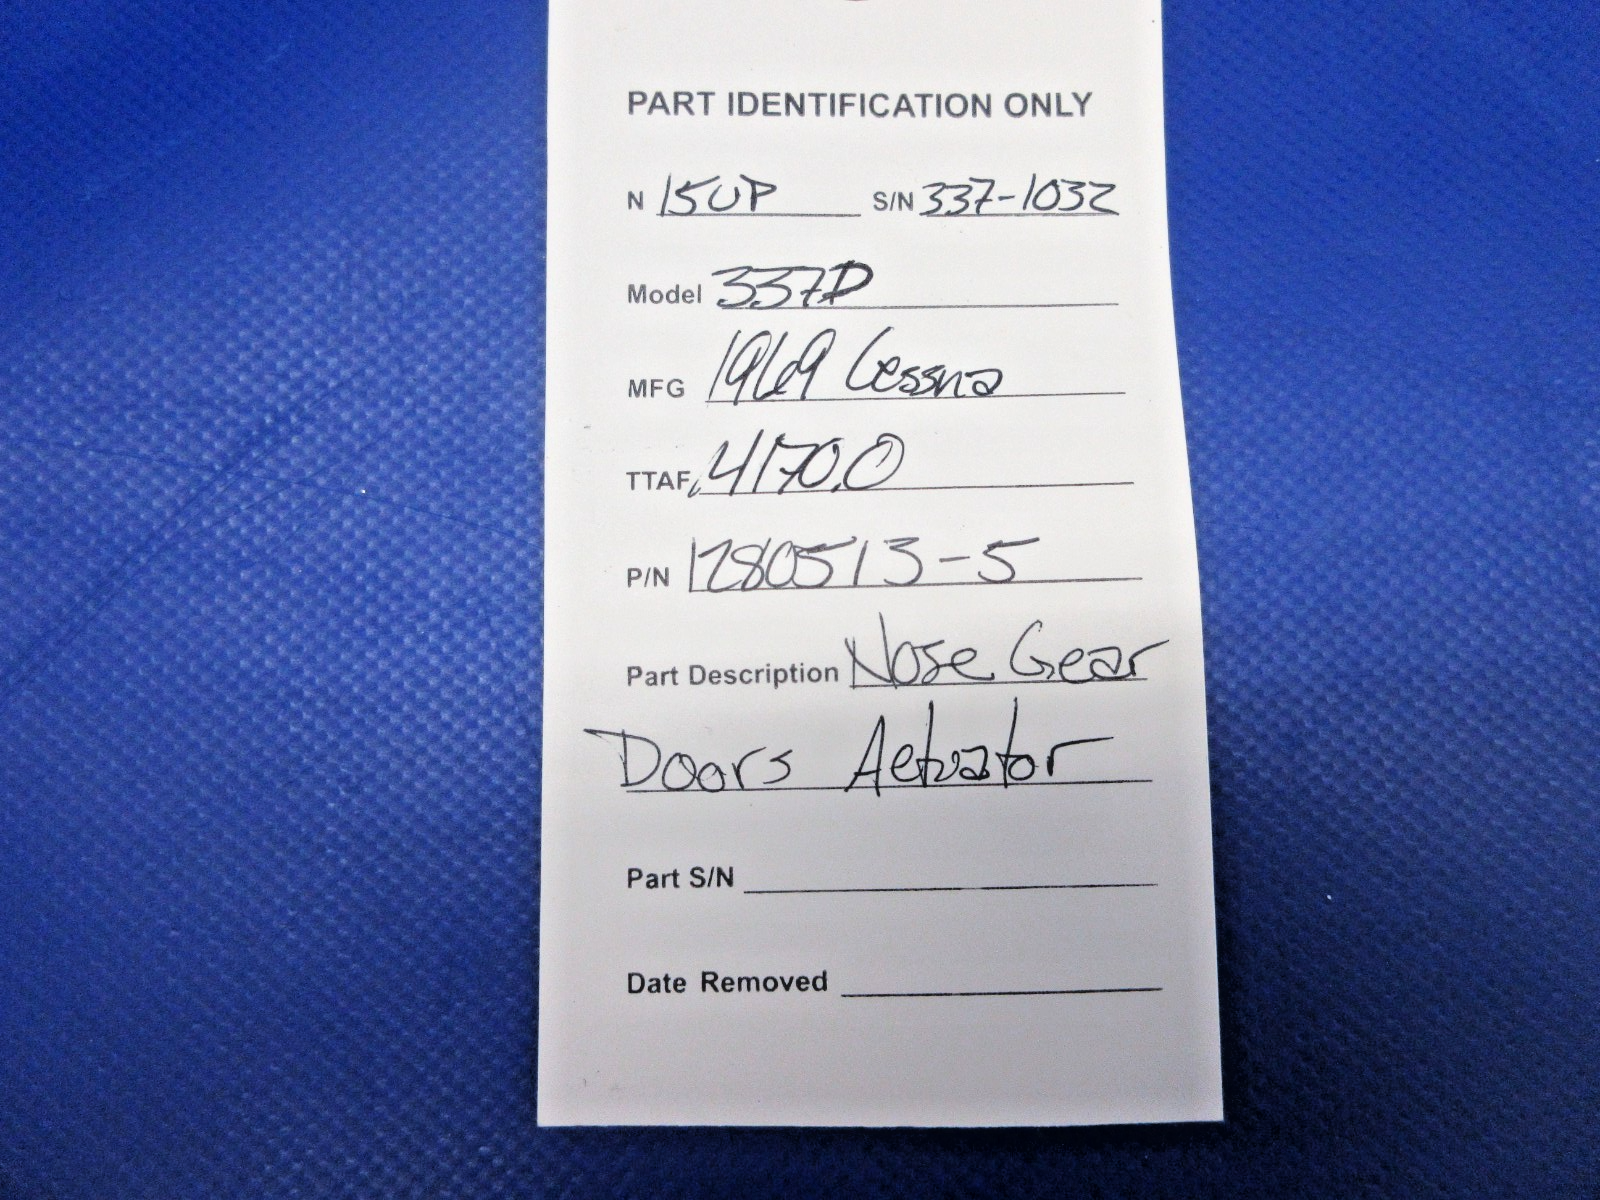 PART IDENTIFICATION ONLY
N 15UP S/N 337-1032
Model 337D
MFG 1969 Cessna
TTAF 4170.0
P/N 1280513-5
Part Description Nose Gear
Doors Actuator
Part S/N
Date Removed